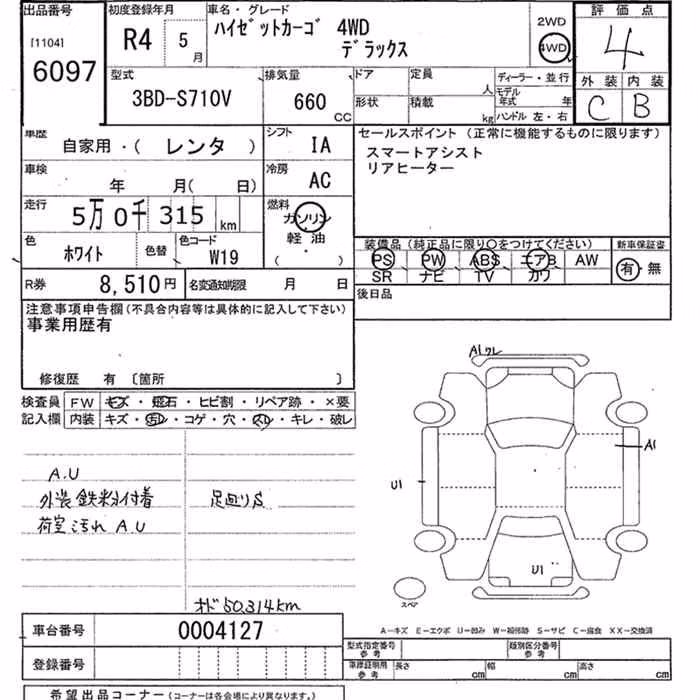 出品番号
[1104]
6097
初度登録年月
R4 5月
車名・グレード
ハイゼットカーゴ 4WD
デラックス
2WD
4WD
評価点
4
外装 内装
C B
型式
3BD-S710V
排気量
660
CC
ドア 定員 人
形状 積載 kg
ディーラー・並行
モデル年式 年
ハンドル 左・右
車歴
自家用・( レンタ )
シフト
IA
車検
年 月( 日)
冷房
AC
走行
5万0千315km
燃料
ガソリン
・
軽油
( )
色
ホワイト
色替
色コード
W19
R券
8,510円
名変通知期限 月 日
セールスポイント (正常に機能するものに限ります)
スマートアシスト
リアヒーター
装備品(純正品に限り○をつけてください)
PS PW ABS エアB AW
SR ナビ TV カワ
新車保証書
有・無
後日品
注意事項申告欄(不具合内容等は具体的に記入して下さい)
事業用歴有
修復歴 有 〔箇所 〕
検査員記入欄
FW キズ・飛石・ヒビ割・リペア跡・×要
内装 キズ・汚レ・コゲ・穴・スレ・キレ・破レ
A.U
外装鉄粉付着
荷室汚れ A.U
足回りS
オド50,314km
A1ワレ
A1
U1
U1
スペア
A−キズ E−エクボ U−凹み W−補修跡 S−サビ C−腐食 XX−交換済
車台番号
0004127
登録番号
型式指定番号 参考
類別区分番号 参考
車庫証明用 参考
長さ cm 幅 cm 高さ cm
希望出品コーナー(コーナーは各会場により異なります。)